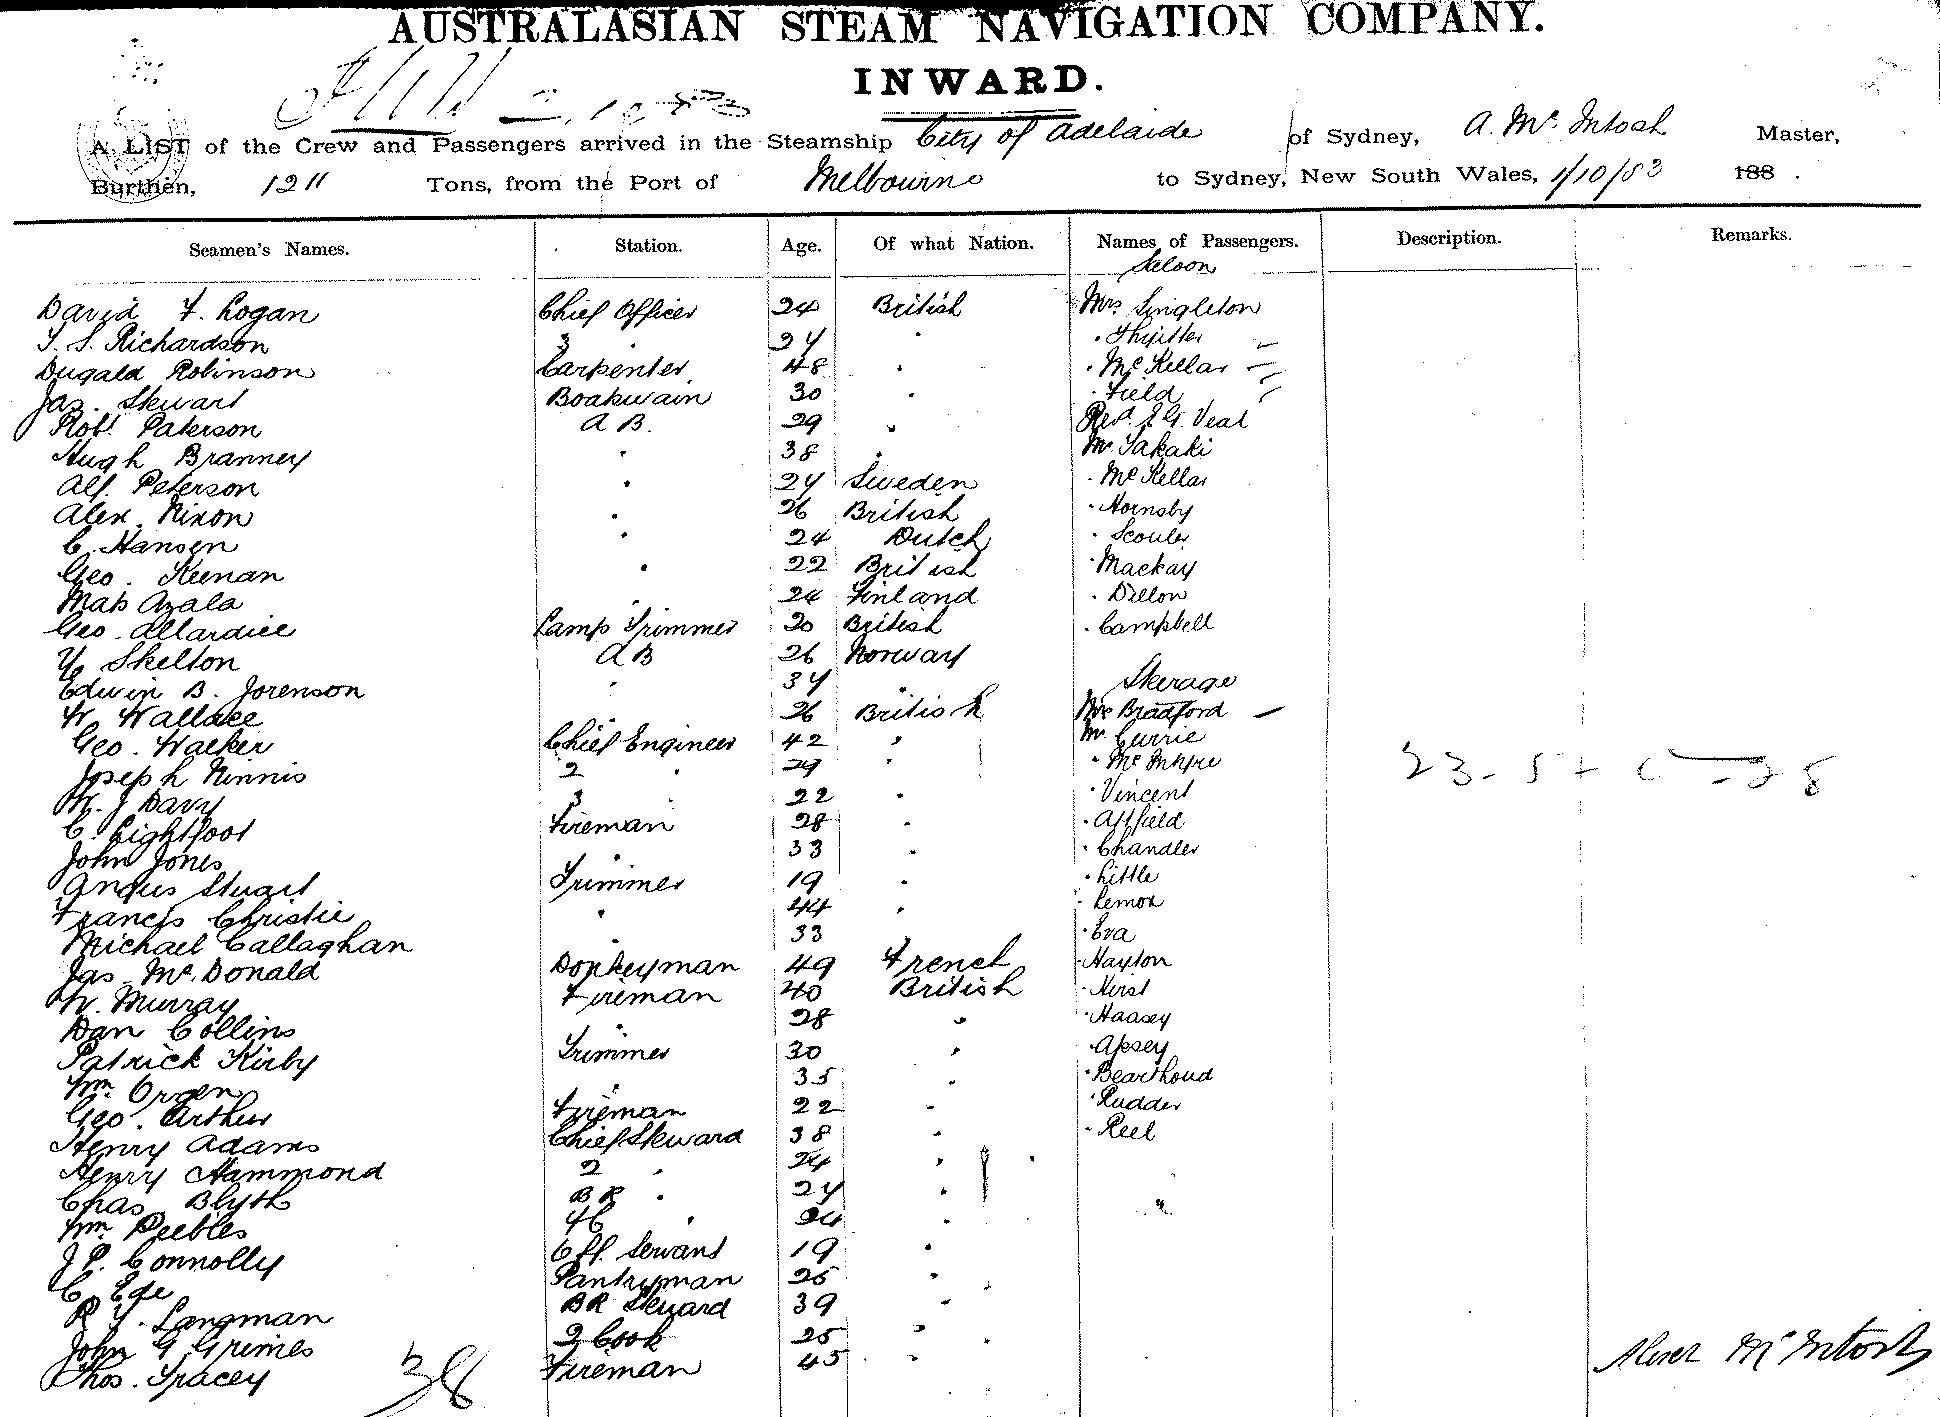 AUSTRALASIAN STEAM NAVIGATION COMPANY.
INWARD.
A LIST of the Crew and Passengers arrived in the Steamship City of Adelaide of Sydney, A. Mc Intosh Master,
Burthen, 1211 Tons, from the Port of Melbourne to Sydney, New South Wales, 1/10/83 188 .
Seamen's Names. Station. Age. Of what Nation. Names of Passengers. Description. Remarks.
Saloon
David F. Logan Chief Officer 24 British Mrs Singleton
T. S. Richardson 3 " 24 "
Dugald Robinson Carpenter 48 " " Mc Kellar
Jas. Stewart Boatswain 30 " " Field
Robt. Paterson A B. 29 " Revd. J. G. Veal
Hugh Branney " 38 " Mr Takaki
Alf. Peterson " 24 Sweden " Mc Kellar
Alex. Nixon " 26 British " Hornsby
C. Hansen " 24 Dutch " Scouler
Geo. Keenan " 22 British " Mackay
Mats Azala " 24 Finland " Dillon
Geo. Allardice Lamp Trimmer 20 British " Campbell
Skelton A B 26 Norway
Edwin B. Jorenson " 34 " Steerage
W. Wallace " 26 British Mrs Bradford
Geo. Walker Chief Engineer 42 " Mr Currie
Joseph Ninnis 2 " 29 " " Mc Intyre
W. J Davy 3 " 22 " " Vincent
C. Lightfoot Fireman 28 " " Affield
John Jones " 33 " " Chandler
Angus Stuart Trimmer 19 " " Little
Francis Christie " 44 " " Lemon
Michael Callaghan " 33 " " Eva
Jas. Mc. Donald Donkeyman 49 French " Hayton
W. Murray Fireman 40 British " Hirst
Dan Collins " 28 " " Haasey
Patrick Kirby Trimmer 30 " " Apsey
Wm. Orgen " 35 " " Bearthoud
Geo. Arthur Fireman 22 " " Rudder
Henry Adams Chief Steward 38 " " Reel
Henry Hammond 2 " 24 "
Chas Blyth B R " 24 "
Wm. Peebles " 24 "
J P. Connolly Off. Servant 19 "
C. Ede Pantryman 25 "
R Y. Langman B R Steward 39 "
John G Grimes 2 Cook 25 "
Thos. Tracey Fireman 45 "
38
Alexr McIntosh